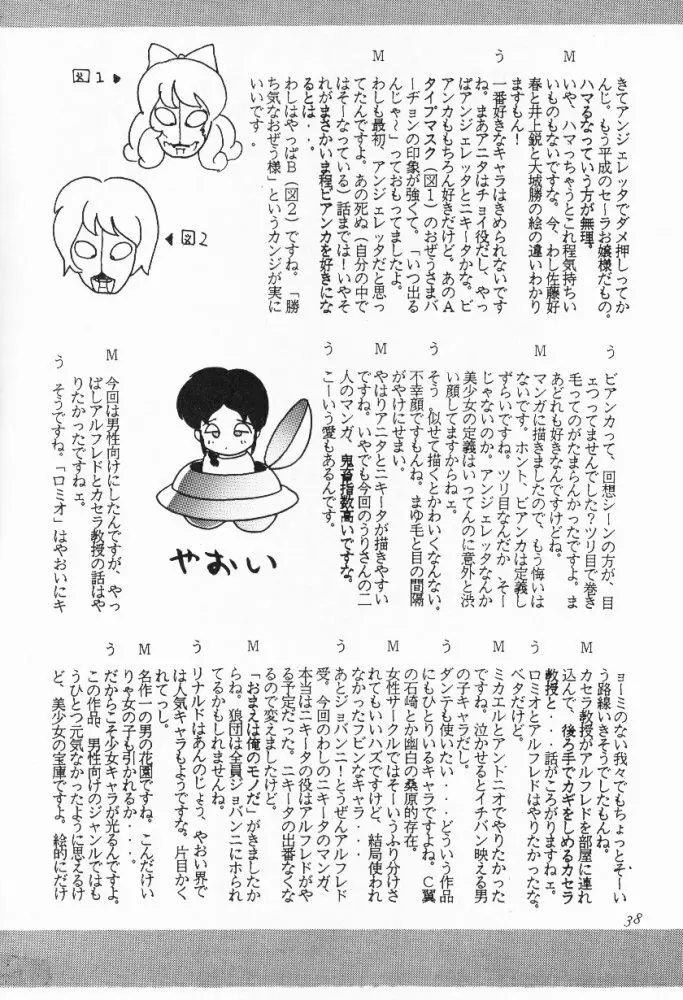 M
きてアンジェレッタでダメ押しってか
んじ。もう平成のセーラお嬢様だもの。
ハマるなっていう方が無理。
う
いや、ハマっちゃうとこれ程気持ちい
いものもないですな。今、わし佐藤好
春と井上鋭と大城勝の絵の違いわかり
ますもん!
一番好きなキャラはきめられないです
ね。まあアニタはチョイ役だし、やっ
ぱアンジェレッタとニキータかな。ビ
アンカももちろん好きだけど。あのA
タイプマスク(図1)のおぜうさまバ
ージョンの印象が強くて。「いつ出る
んじゃ〜」っておもってましたよ。
M
わしも最初、アンジェレッタだと思っ
てたんですよ。あの死ぬ(自分の中で
はそーなっている)話までは!いやそ
れがまさかいま程ビアンカを好きにな
るとは・・。
わしはやっぱB(図2)ですね。「勝
ち気なおぜう様」というカンジが実に
いいです。
図1
図2
う
ビアンカって、回想シーンの方が、目
ェつってませんでした?ツリ目で巻き
毛ってのがたまらんかったですよ。ま
あどれも好きなんですけどね。
M
マンガに描きましたので、もう悔いは
ないです。ホント、ビアンカは定義し
ずらいですね。ツリ目なんだか、そー
じゃないのか。アンジェレッタなんか
美少女の定義はいってんのに意外と渋
い顔してますからねェ。
う
そう。似せて描くとかわいくなんない。
不幸顔ですもんね。まゆ毛と目の間隔
がやけにせまい。
M
やはりアニタとニキータが描きやすい
ですね。いやでも今回のうりさんの二
人のマンガ、鬼畜指数高いですな。
う
こーいう愛もあるんです。
やおい
M
今回は男性向けにしたんですが、やっ
ぱしアルフレドとカセラ教授の話はや
りたかったですねェ。
う
そうですね。「ロミオ」はやおいにキ
ョーミのない我々でもちょっとそーい
う路線いきそうでしたもんね。
M
カセラ教授がアルフレドを部屋に連れ
込んで、後ろ手でカギをしめるカセラ
教授と・・話がころがりますねェ。
う
ロミオとアルフレドはやりたかったな。
ベタだけど。
M
ミカエルとアントニオでやりたかった
ですね。泣かせるとイチバン映える男
の子キャラだし。
う
ダンテも使いたい・・どういう作品
にもひとりいるキャラですよね。C翼
の石崎とか幽白の桑原的存在。
M
女性サークルではそーいうふり分けさ
れてもいいハズですけど、結局使われ
なかったフビンなキャラ・・
う
あとジョバンニ!とうぜんアルフレド
受。今回のわしのニキータのマンガ、
本当はニキータの役はアルフレドがや
る予定だった。ニキータの出番なくな
るので変えましたけど。
M
「おまえは俺のモノだ」がきましたか
らね。狼団は全員ジョバンニにホられ
てるかもしれませんね。
う
リナルドはあんのじょう、やおい界で
は人気キャラもようですな。片目かく
れてっし。
M
名作一の男の花園ですね。こんだけい
りゃ女の子も引かれるか・・。
う
だからこそ少女キャラが光るんですよ。
この作品、男性向けのジャンルではも
うひとつ元気なかったように思えるけ
ど、美少女の宝庫ですよ。絵的にだけ
38